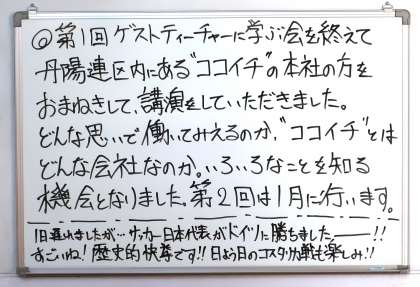 ◎第1回ゲストティーチャーに学ぶ会を終えて
丹陽連区内にある"ココイチ"の本社の方を
おまねきして、講演をしていただきました。
どんな思いで働いてみえるのか、"ココイチ"とは
どんな会社なのか。いろいろなことを知る
機会となりました。第2回は1月に行います。
1日遅れましたが…サッカー日本代表がドイツに勝ちました――!!
すごいね!歴史的快挙です!!日よう日のコスタリカ戦も楽しみ!!